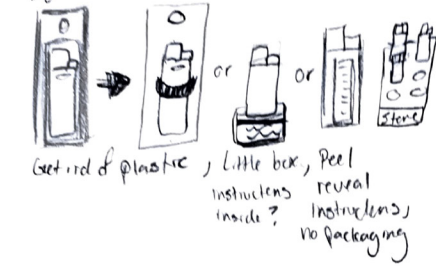 or
or
Store
Get rid of plastic, Little box, Peel
instructens reveal
inside? Instructens,
no packaging